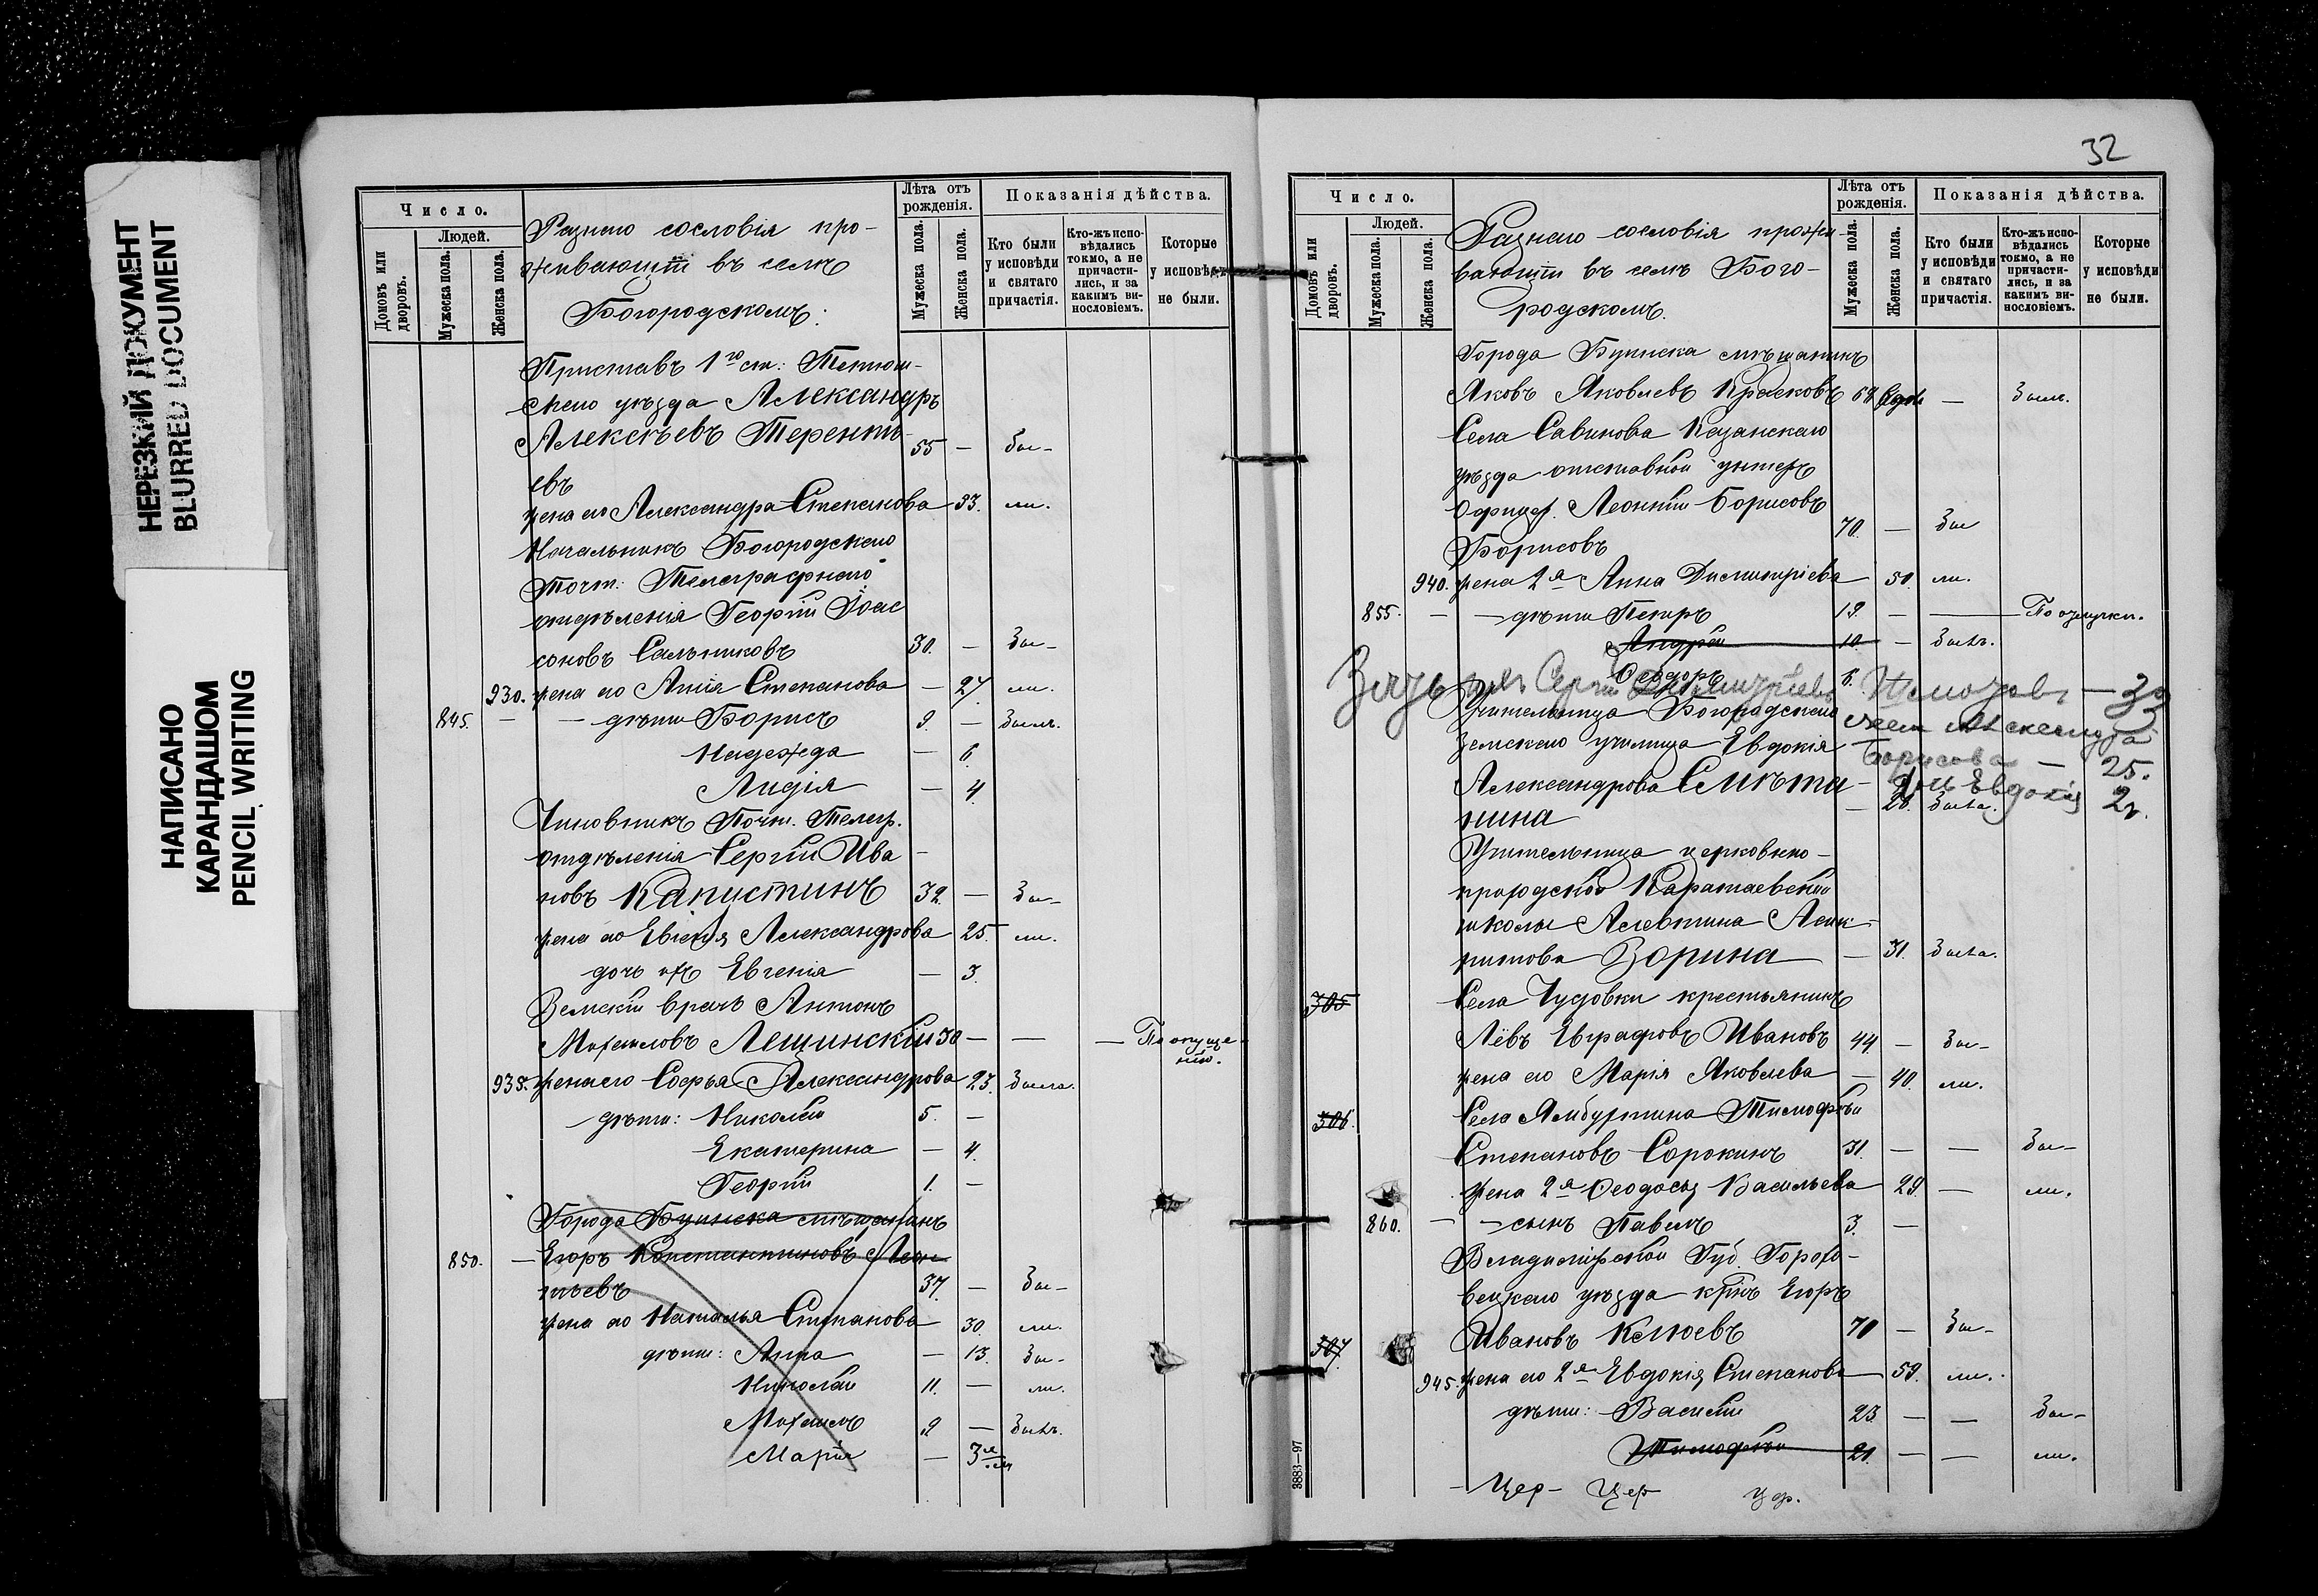 НЕРЕЗКИЙ ДОКУМЕНТ
BLURRED DOCUMENT
НАПИСАНО
КАРАНДАШОМ
PENCIL WRITING
Число.
Домовъ или дворовъ.
Людей.
Мужеска пола.
Женска пола.
Разнаго сословія про-
живающіе въ селѣ
Богородскомъ:
Лѣта отъ рожденія.
Мужеска пола.
Женска пола.
Показанія дѣйства.
Кто были у исповѣди и святаго причастія.
Кто-жъ исповѣдались токмо, а не причастились, и за какимъ винословіемъ.
Которые у исповѣди не были.
Приставъ 1го ст: Тетюш-
скаго уѣзда Александръ
Алексѣевъ Терентъ- 55 — бы-
евъ
жена его Александра Степанова 33. ли.
Начальникъ Богородскаго
Почт: Телеграфнаго
отдѣленія Георгій
соновъ Сальниковъ 30. — бы-
930. жена его Анна Степанова — 27 ли.
845. — — дѣти Борисъ 9. — былъ.
Надежда — 6.
Лидія — 4.
Чиновникъ Почт. Телегр.
отдѣленія Сергій Ива -
новъ Капустинъ 32. — бы-
жена его Александрова 25. ли.
дочь ихъ Евгенія — 3.
Земскій врачъ Антонъ
Михаиловъ Лещинскій 30 — — — По опуще-
нію.
935. жена его Софья Александрова 23. была.
дѣти: Николай 5. —
Екатерина — 4.
Георгій 1. —
Города Буинска мѣщанинъ
850. — Егоръ Константиновъ Леон-
тьевъ 37. — бы-
жена его Наталья Степанова 30. ли.
дѣти: Анна — 13. бы-
Николай 11. — ли.
Михаилъ 9 — былъ.
Марія — 3
32
Число.
Домовъ или дворовъ.
Людей.
Мужеска пола.
Женска пола.
Разнаго сословія прожи-
вающіе въ селѣ Бого-
родскомъ.
Лѣта отъ рожденія.
Мужеска пола.
Женска пола.
Показанія дѣйства.
Кто были у исповѣди и святаго причастія.
Кто-жъ исповѣдались токмо, а не причастились, и за какимъ винословіемъ.
Которые у исповѣди не были.
Города Буинска мѣщанинъ
Яковъ Яковлевъ Красковъ 68 — былъ.
Села Савинова Казанскаго
уѣзда отставной унтеръ
Офицер. Леонтій Борисовъ
Борисовъ 70. — бы
940. жена 2я Анна Димитріева 50 ли.
855. — — дѣти Петръ 19. — — По отлучки.
Андрей 10. — былъ.
Ѳеодоръ 6.
Сергій Димитріевъ — 30
Учительница Богородскаго
жена Александра
Земскаго училища Евдокія
Борисова — 25.
Александрова Смѣта-
дочь Евдокія 2г.
нина — 20. была.
Учительница церковно-
приходской Каратаевской
школы Алевтина
Зорина — 31. была.
305 Села Чудовки крестьянинъ
Левъ Евграфовъ Ивановъ 44. — бы-
жена его Марія Яковлева — 40. ли.
306. Села Ямбухтина Тимофей
Степановъ Сорокинъ 31. — — бы-
жена 2я Ѳеодосья Васильева 29. — ли.
860. — — сынъ Павелъ 3. —
Владимірской Губ. Горохо-
вецкаго уѣзда кр-нъ Егоръ
307. Ивановъ Клюевъ 70 — бы-
945. жена его 2я Евдокія Степанова 59. ли.
дѣти: Василій 23 — — бы-
Тимофей 21. — — ли.
Цер- Цер
3883—97